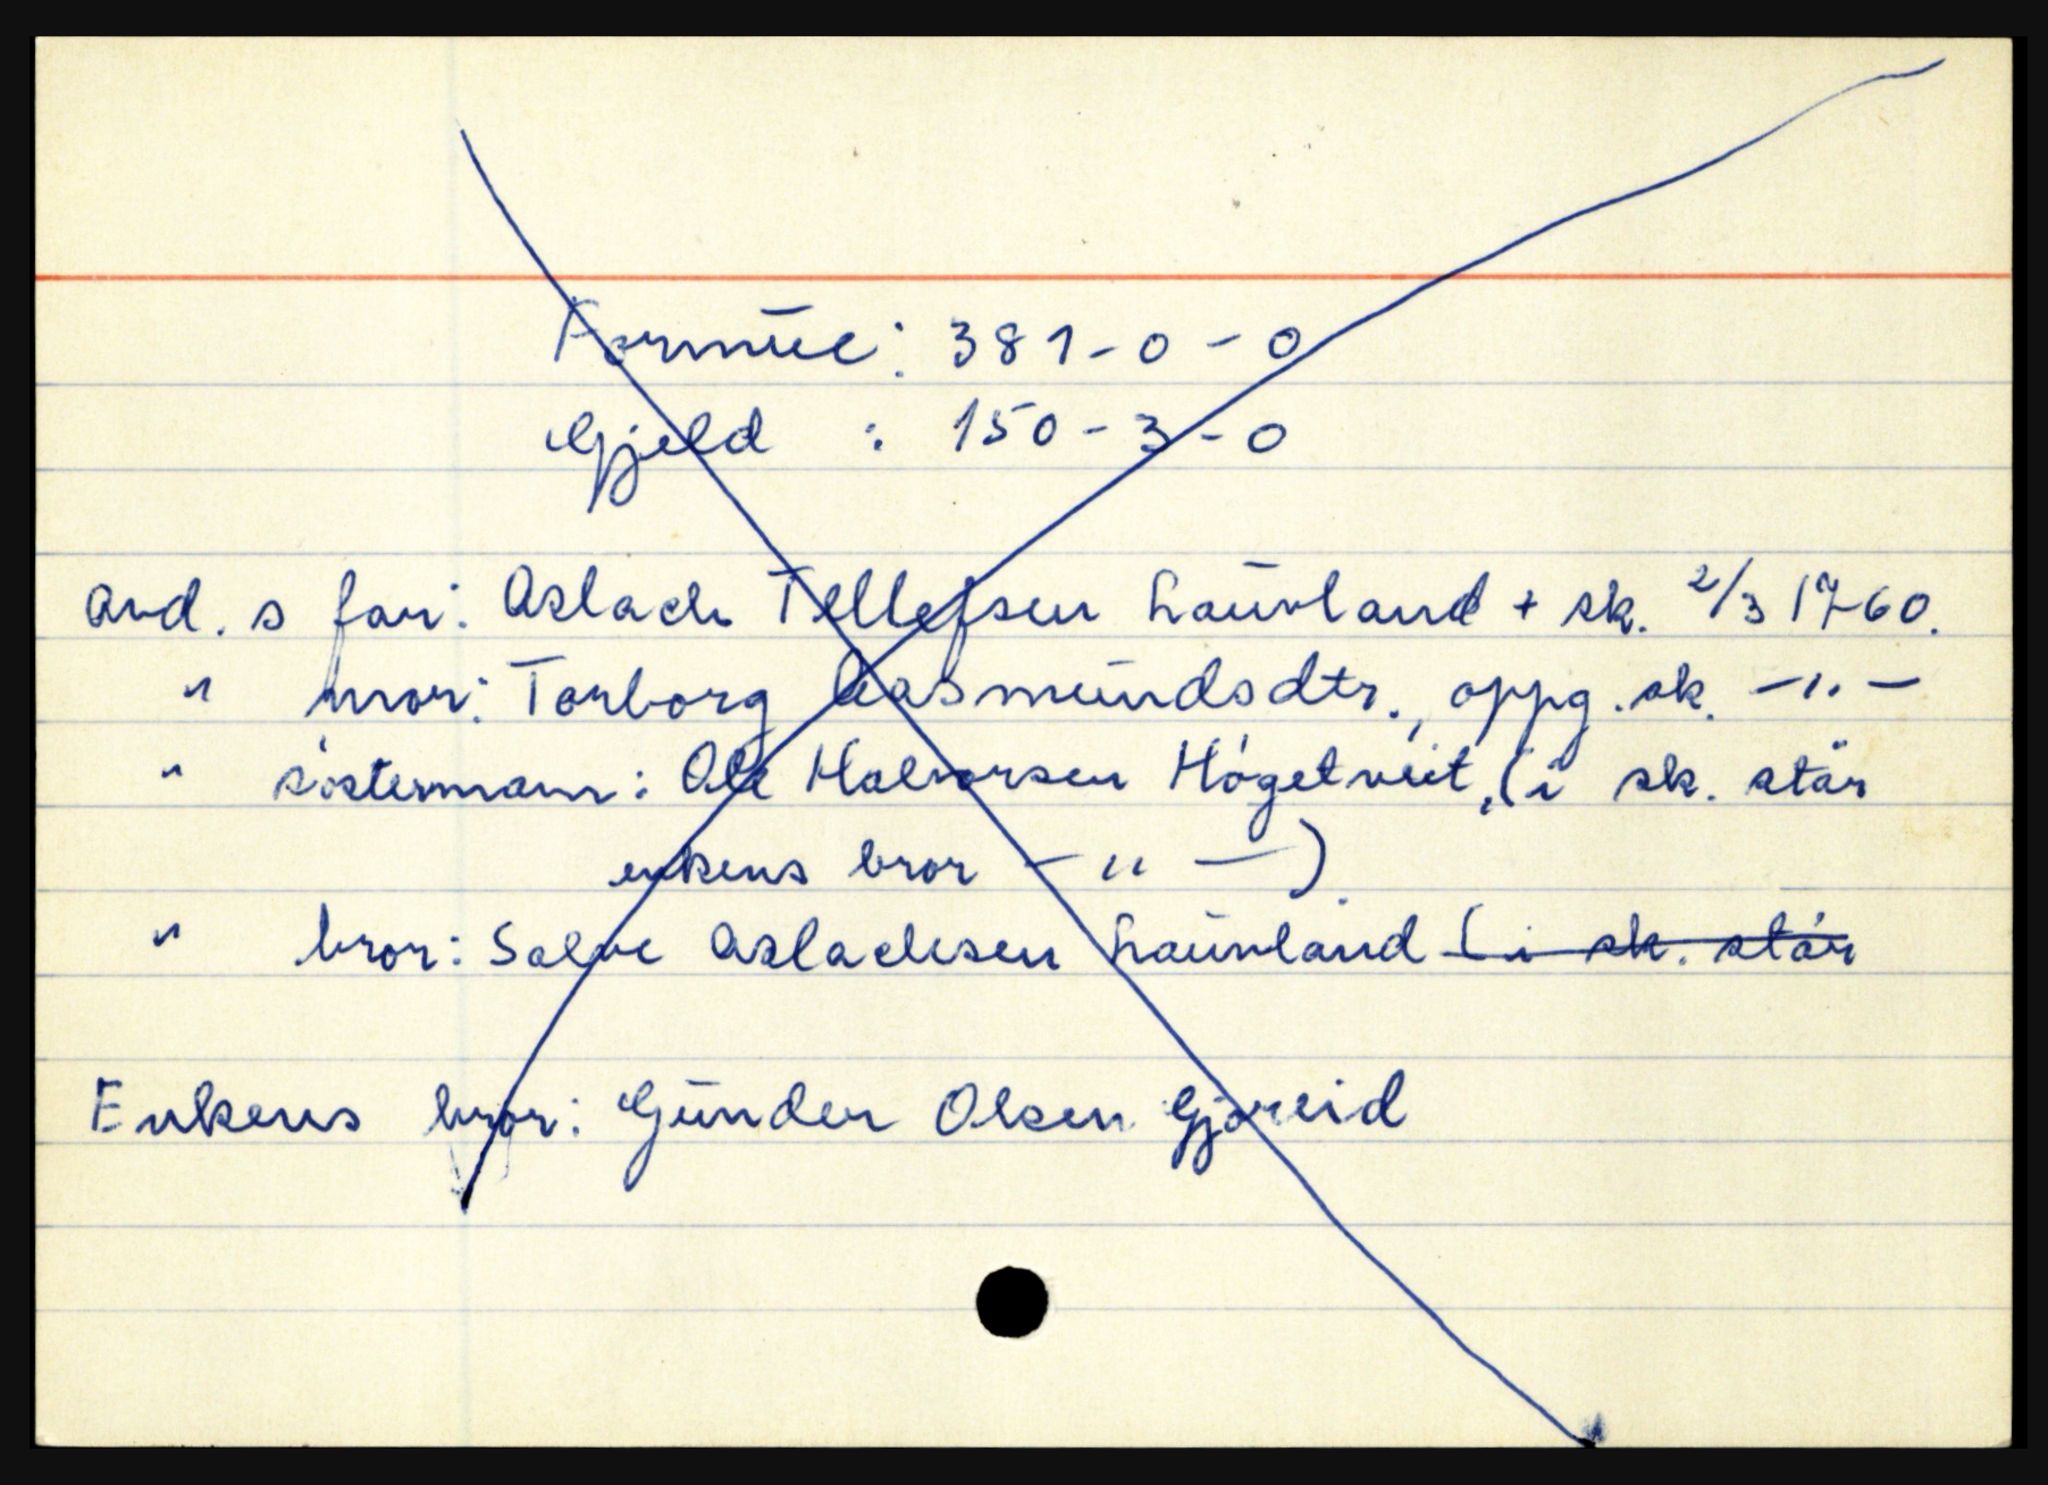 Formúe: 381-0-0
Gjeld : 150-3-0
avd. s far: Aslach Tellefsen Laúvland + sk. 2/3 1760.
" mor: Torborg Aasmúndsdtr., oppg. sk. -"-
" søstermann: Ole Halvorsen Høgetveit, (i sk. står
enkens bror -"-).
" bror: Salve Aslachsen Laúvland (i sk. står
Enkens bror: Gúnder Olsen Gjøreid